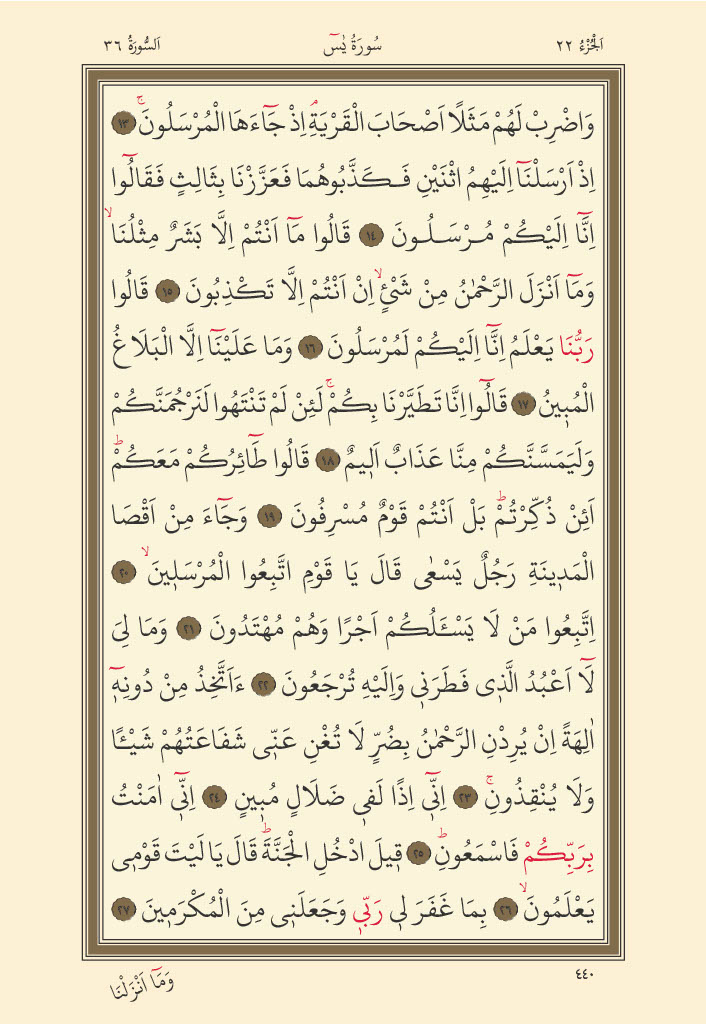 اَلْجُزْءُ ٢٢ سُورَةُ يٰسٓ اَلسُّورَةُ ٣٦
وَاضْرِبْ لَهُمْ مَثَلًا اَصْحَابَ الْقَرْيَةِۢ اِذْ جَٓاءَهَا الْمُرْسَلُونَۚ ﴿١٣﴾
اِذْ اَرْسَلْنَٓا اِلَيْهِمُ اثْنَيْنِ فَكَذَّبُوهُمَا فَعَزَّزْنَا بِثَالِثٍ فَقَالُٓوا
اِنَّٓا اِلَيْكُمْ مُرْسَلُونَ ﴿١٤﴾ قَالُوا مَٓا اَنْتُمْ اِلَّا بَشَرٌ مِثْلُنَاۙ
وَمَٓا اَنْزَلَ الرَّحْمٰنُ مِنْ شَيْءٍۙ اِنْ اَنْتُمْ اِلَّا تَكْذِبُونَ ﴿١٥﴾ قَالُوا
رَبُّنَا يَعْلَمُ اِنَّٓا اِلَيْكُمْ لَمُرْسَلُونَ ﴿١٦﴾ وَمَا عَلَيْنَٓا اِلَّا الْبَلَاغُ
الْمُب۪ينُ ﴿١٧﴾ قَالُٓوا اِنَّا تَطَيَّرْنَا بِكُمْۚ لَئِنْ لَمْ تَنْتَهُوا لَنَرْجُمَنَّكُمْ
وَلَيَمَسَّنَّكُمْ مِنَّا عَذَابٌ اَل۪يمٌ ﴿١٨﴾ قَالُوا طَٓائِرُكُمْ مَعَكُمْۜ
اَئِنْ ذُكِّرْتُمْۜ بَلْ اَنْتُمْ قَوْمٌ مُسْرِفُونَ ﴿١٩﴾ وَجَٓاءَ مِنْ اَقْصَا
الْمَد۪ينَةِ رَجُلٌ يَسْعٰى قَالَ يَا قَوْمِ اتَّبِعُوا الْمُرْسَل۪ينَۙ ﴿٢٠﴾
اِتَّبِعُوا مَنْ لَا يَسْـَٔلُكُمْ اَجْرًا وَهُمْ مُهْتَدُونَ ﴿٢١﴾ وَمَا لِيَ
لَٓا اَعْبُدُ الَّذ۪ي فَطَرَن۪ي وَاِلَيْهِ تُرْجَعُونَ ﴿٢٢﴾ ءَاَتَّخِذُ مِنْ دُونِه۪ٓ
اٰلِهَةً اِنْ يُرِدْنِ الرَّحْمٰنُ بِضُرٍّ لَا تُغْنِ عَنّ۪ي شَفَاعَتُهُمْ شَيْـًٔا
وَلَا يُنْقِذُونِۚ ﴿٢٣﴾ اِنّ۪ٓي اِذًا لَف۪ي ضَلَالٍ مُب۪ينٍ ﴿٢٤﴾ اِنّ۪ٓي اٰمَنْتُ
بِرَبِّكُمْ فَاسْمَعُونِۜ ﴿٢٥﴾ ق۪يلَ ادْخُلِ الْجَنَّةَۜ قَالَ يَا لَيْتَ قَوْم۪ي
يَعْلَمُونَۙ ﴿٢٦﴾ بِمَا غَفَرَ ل۪ي رَبّ۪ي وَجَعَلَن۪ي مِنَ الْمُكْرَم۪ينَ ﴿٢٧﴾
٤٤٠
وَمَٓا اَنْزَلْنَا